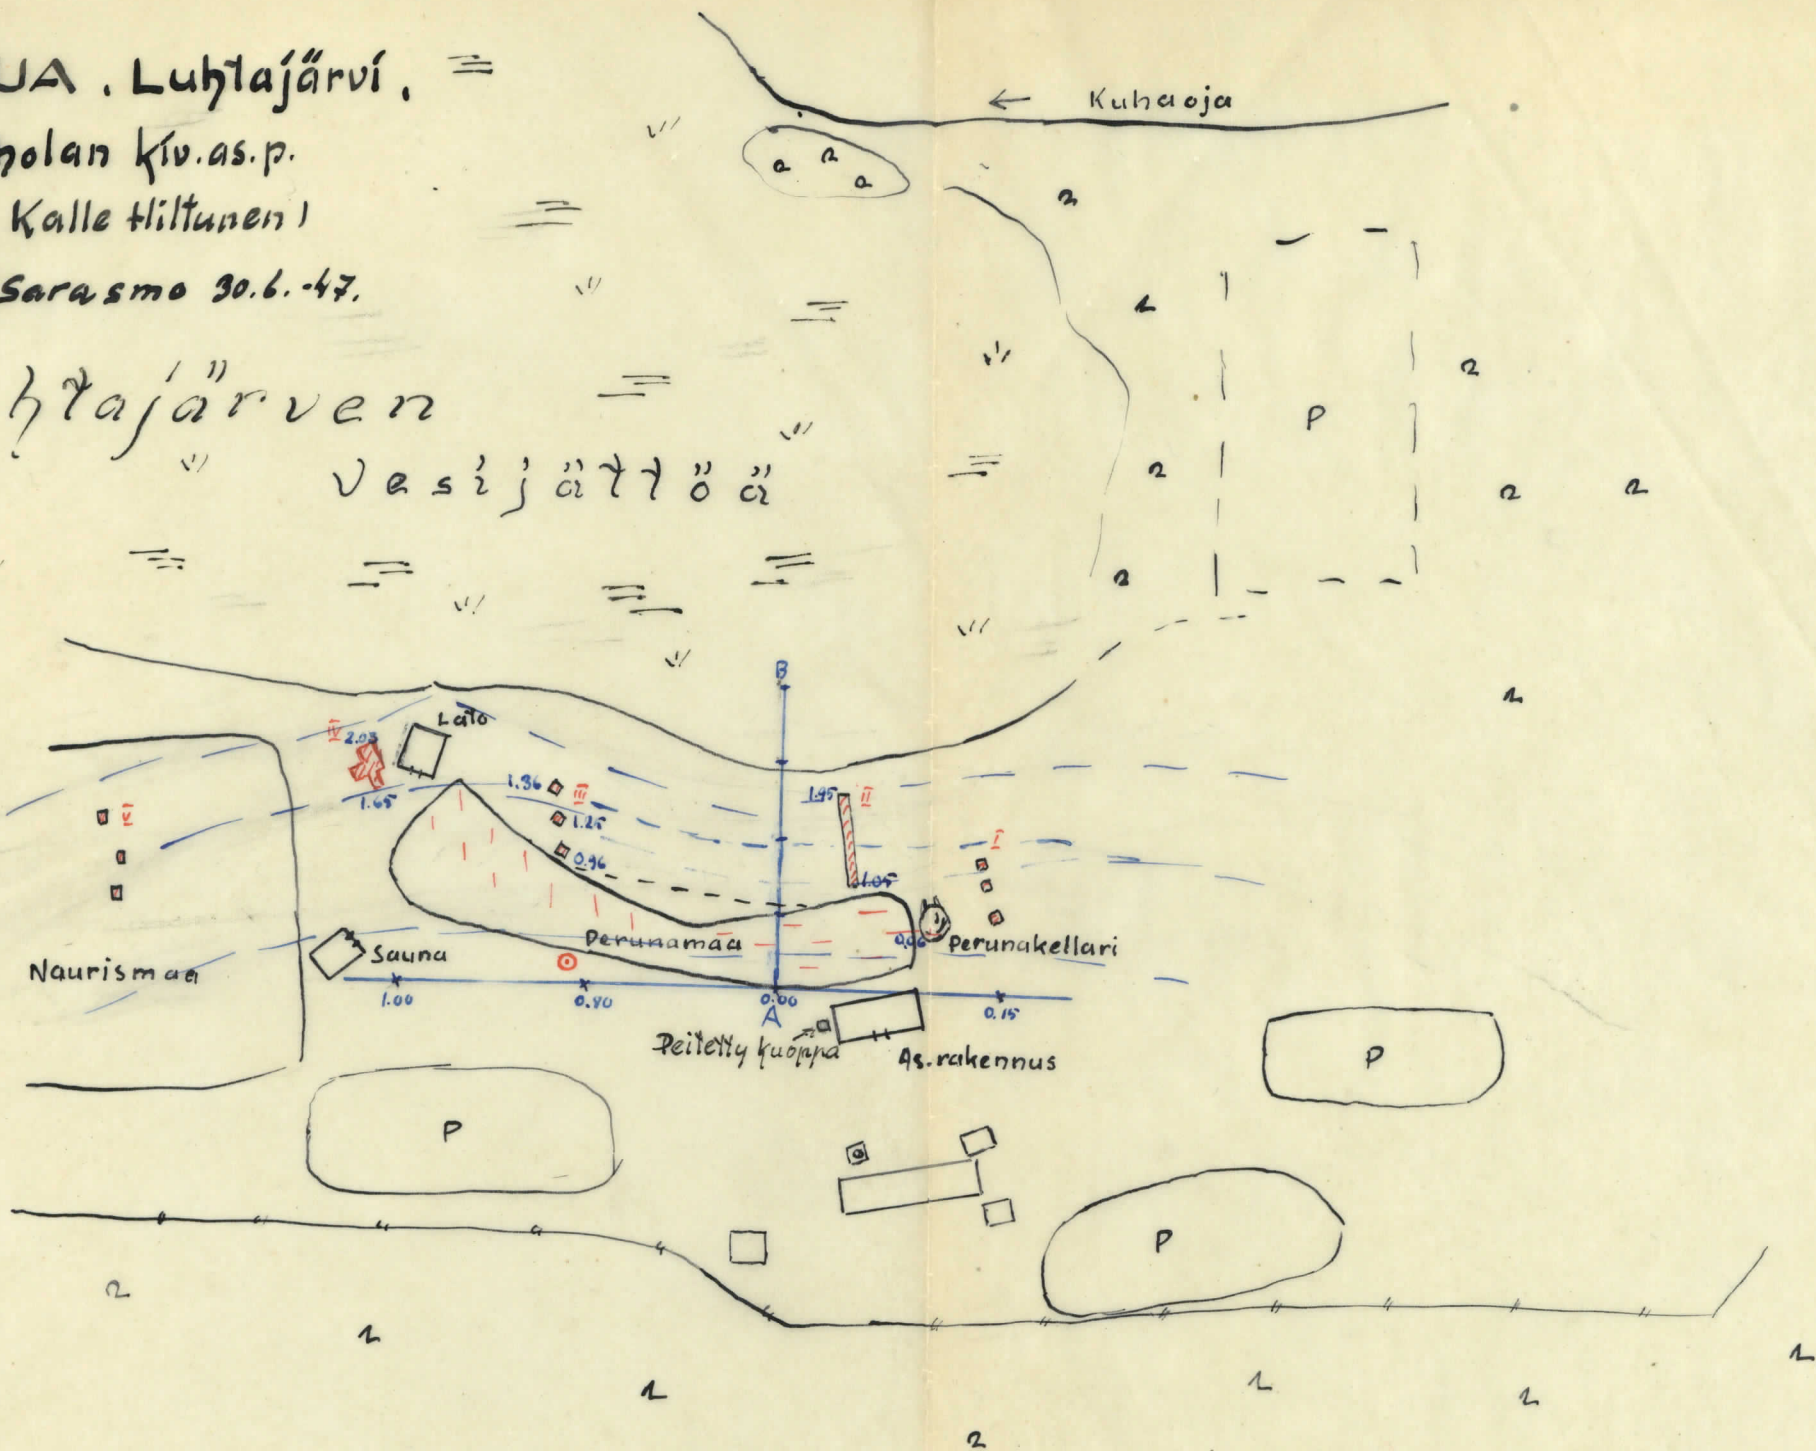 UA. Luhtajärvi,
holan kiv.as.p.
Kalle Hiltunen)
Sarasmo 30.6.-47.
← Kuhaoja
htajärven
vesijättöä
P
B
Lato
IV 2.03
1.65
1.36 III
1.25
0.96
1.95 II
1.05
I
V
Perunamaa
0.96
Perunakellari
Sauna
Naurismaa
1.00
0.80
0.00
0.15
A
Peitetty kuoppa
As.rakennus
P
P
P